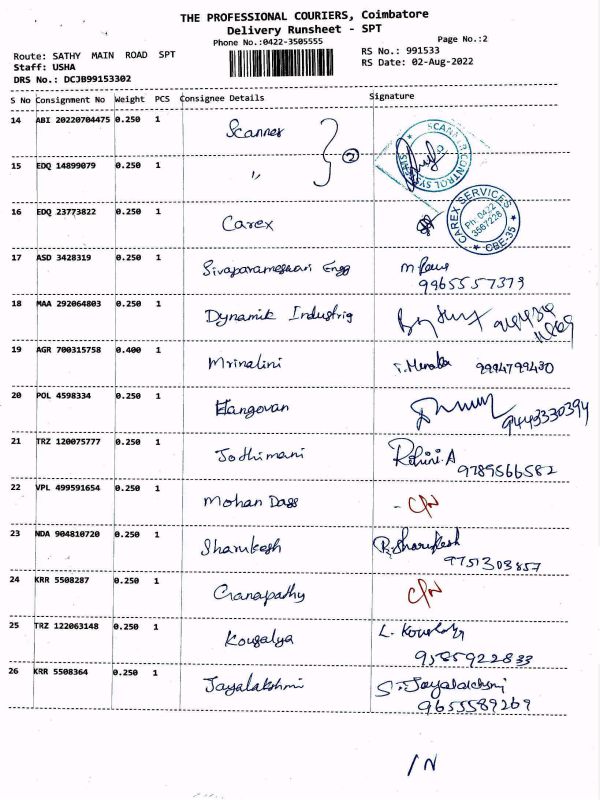 THE PROFESSIONAL COURIERS, Coimbatore
Delivery Runsheet - SPT
Phone No.:0422-3505555
Page No.:2
Route: SATHY MAIN ROAD SPT
RS No.: 991533
Staff: USHA
RS Date: 02-Aug-2022
DRS No.: DCJB99153302
S No Consignment No Weight PCS Consignee Details Signature
14 ABI 20220704475 0.250 1 Scanner
2
SCANNER CONTROL SYSTEMS
15 EDQ 14899079 0.250 1 "
16 EDQ 23773822 0.250 1 Carex
CAREX SERVICES
Ph: 0422
3567228
* CBE-35 *
17 ASD 3428319 0.250 1 Sivaparameswari Engg
9965557379
18 MAA 292064803 0.250 1 Dynamik Industrig
19 AGR 700315758 0.400 1 Mrinalini T. Menaka 9994799430
20 POL 4598334 0.250 1 Elangovan
9443330394
21 TRZ 120075777 0.250 1 Jothimani Rohini.A
9789566582
22 VPL 499591654 0.250 1 Mohan Dass - C/N
23 NDA 904810720 0.250 1 Sharukesh R. Sharukesh
9751303857
24 KRR 5508287 0.250 1 Ganapathy C/N
25 TRZ 122063148 0.250 1 Kousalya L. Kousalya
9585922833
26 KRR 5508364 0.250 1 Jayalakshmi S. Jayalakshmi
9655589269
IN